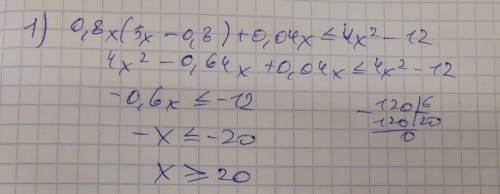 1) 0,8x(5x-0,8)+0,04x≤4x²-12
4x²-0,64x+0,04x≤4x²-12
-0,6x≤-12
-x≤-20
x≥20
-120|6
120|20
0